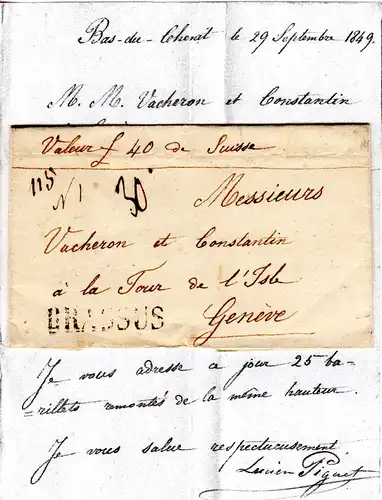 Bas-du-Chenit le 29 Septembre 1849.
M. M. Vacheron et Constantin
Valeur £ 40 de Suisse
115
N 1
30
Messieurs
Vacheron et Constantin
à la Tour de l'Isle
Genève
BRASSUS
Je vous adresse a jour 25 ba-
-rillets remontés de la même hauteur.
Je vous salue respectueusement
Lucien Piguet